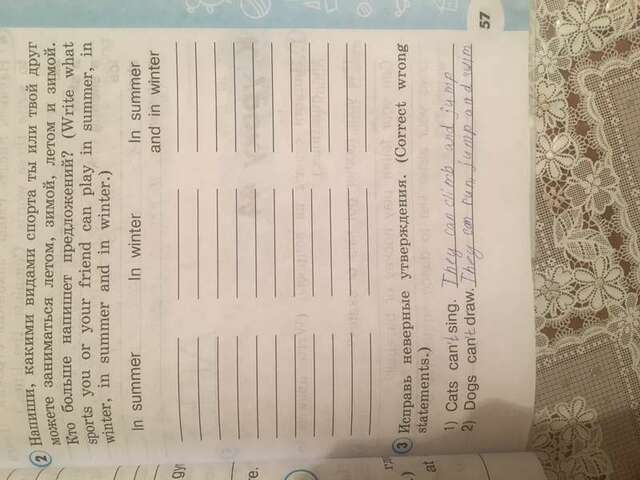 2 Напиши, какими видами спорта ты или твой друг
можете заниматься летом, зимой, летом и зимой.
Кто больше напишет предложений? (Write what
sports you or your friend can play in summer, in
winter, in summer and in winter.)
In summer In winter In summer
and in winter
3 Исправь неверные утверждения. (Correct wrong
statements.)
1) Cats can't sing. They can climb and jump
2) Dogs can't draw. They can run jump and swim
57